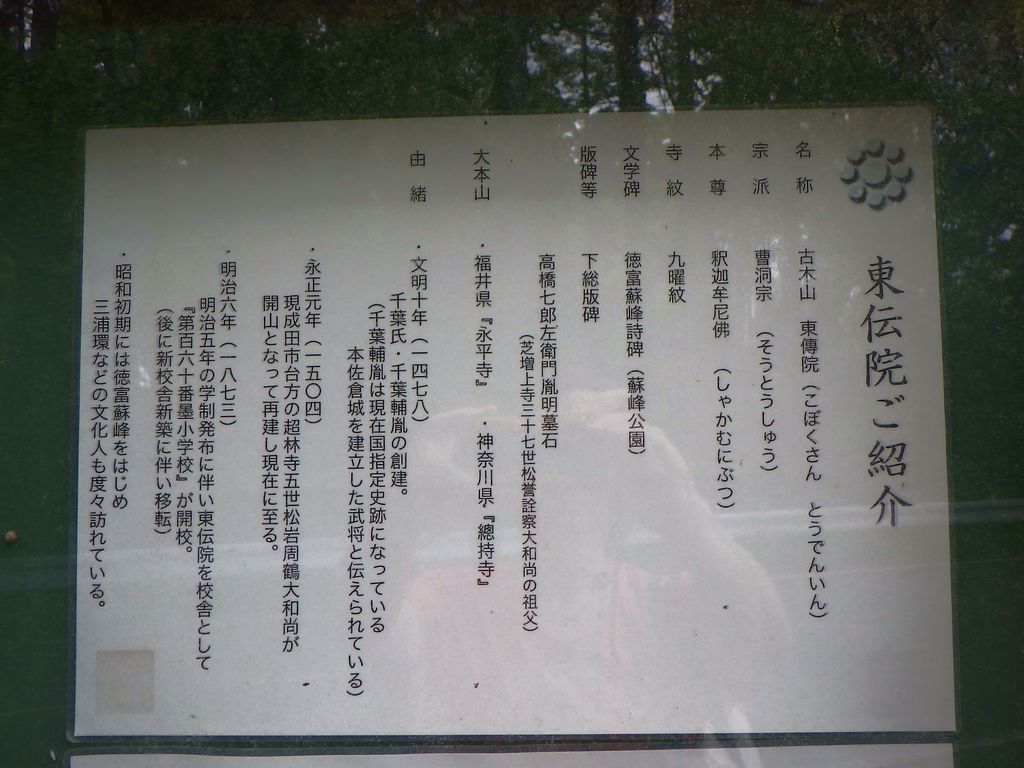 東伝院ご紹介
名称 古木山 東傳院（こぼくさん とうでんいん）
宗派 曹洞宗 （そうとうしゅう）
本尊 釈迦牟尼佛 （しゃかむにぶつ）
寺紋 九曜紋
文学碑 徳富蘇峰詩碑（蘇峰公園）
版碑等 下総版碑
高橋七郎左衛門胤明墓石
（芝増上寺三十七世松誉詮察大和尚の祖父）
大本山 ・福井県『永平寺』 ・神奈川県『總持寺』
由緒 ・文明十年（一四七八）
千葉氏・千葉輔胤の創建。
（千葉輔胤は現在国指定史跡になっている
本佐倉城を建立した武将と伝えられている）
・永正元年（一五〇四）
現成田市台方の超林寺五世松岩周鶴大和尚が
開山となって再建し現在に至る。
・明治六年（一八七三）
明治五年の学制発布に伴い東伝院を校舎として
『第百六十番墨小学校』が開校。
（後に新校舎新築に伴い移転）
・昭和初期には徳富蘇峰をはじめ
三浦環などの文化人も度々訪れている。